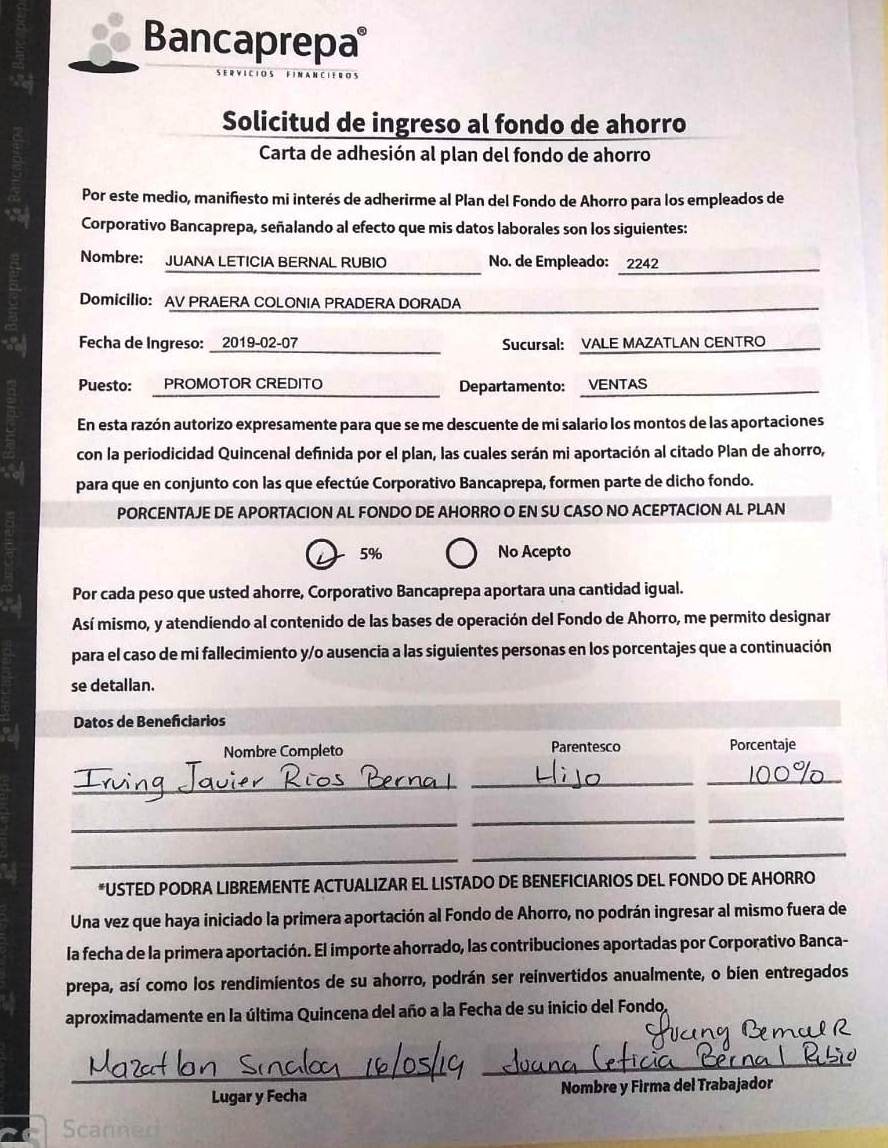 Bancaprepa®
SERVICIOS FINANCIEROS
Solicitud de ingreso al fondo de ahorro
Carta de adhesión al plan del fondo de ahorro
Por este medio, manifiesto mi interés de adherirme al Plan del Fondo de Ahorro para los empleados de
Corporativo Bancaprepa, señalando al efecto que mis datos laborales son los siguientes:
Nombre: JUANA LETICIA BERNAL RUBIO No. de Empleado: 2242
Domicilio: AV PRAERA COLONIA PRADERA DORADA
Fecha de Ingreso: 2019-02-07 Sucursal: VALE MAZATLAN CENTRO
Puesto: PROMOTOR CREDITO Departamento: VENTAS
En esta razón autorizo expresamente para que se me descuente de mi salario los montos de las aportaciones
con la periodicidad Quincenal definida por el plan, las cuales serán mi aportación al citado Plan de ahorro,
para que en conjunto con las que efectúe Corporativo Bancaprepa, formen parte de dicho fondo.
PORCENTAJE DE APORTACION AL FONDO DE AHORRO O EN SU CASO NO ACEPTACION AL PLAN
5% No Acepto
Por cada peso que usted ahorre, Corporativo Bancaprepa aportara una cantidad igual.
Así mismo, y atendiendo al contenido de las bases de operación del Fondo de Ahorro, me permito designar
para el caso de mi fallecimiento y/o ausencia a las siguientes personas en los porcentajes que a continuación
se detallan.
Datos de Beneficiarios
Nombre Completo Parentesco Porcentaje
Irving Javier Rios Bernal Hijo 100%
*USTED PODRA LIBREMENTE ACTUALIZAR EL LISTADO DE BENEFICIARIOS DEL FONDO DE AHORRO
Una vez que haya iniciado la primera aportación al Fondo de Ahorro, no podrán ingresar al mismo fuera de
la fecha de la primera aportación. El importe ahorrado, las contribuciones aportadas por Corporativo Banca-
prepa, así como los rendimientos de su ahorro, podrán ser reinvertidos anualmente, o bien entregados
aproximadamente en la última Quincena del año a la Fecha de su inicio del Fondo.
Juana Bernal R
Mazatlan Sinaloa 16/05/19 Juana Leticia Bernal Rubio
Lugar y Fecha Nombre y Firma del Trabajador
CS Scanned